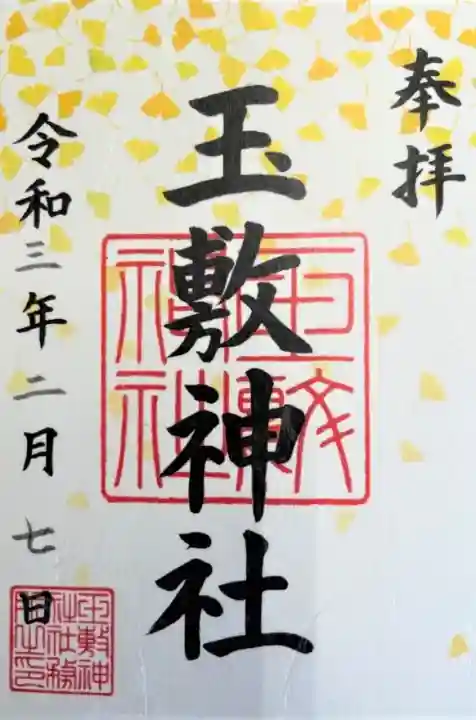 奉拝
玉敷神社
令和三年二月七日
玉敷神社
玉敷神社社務所之印